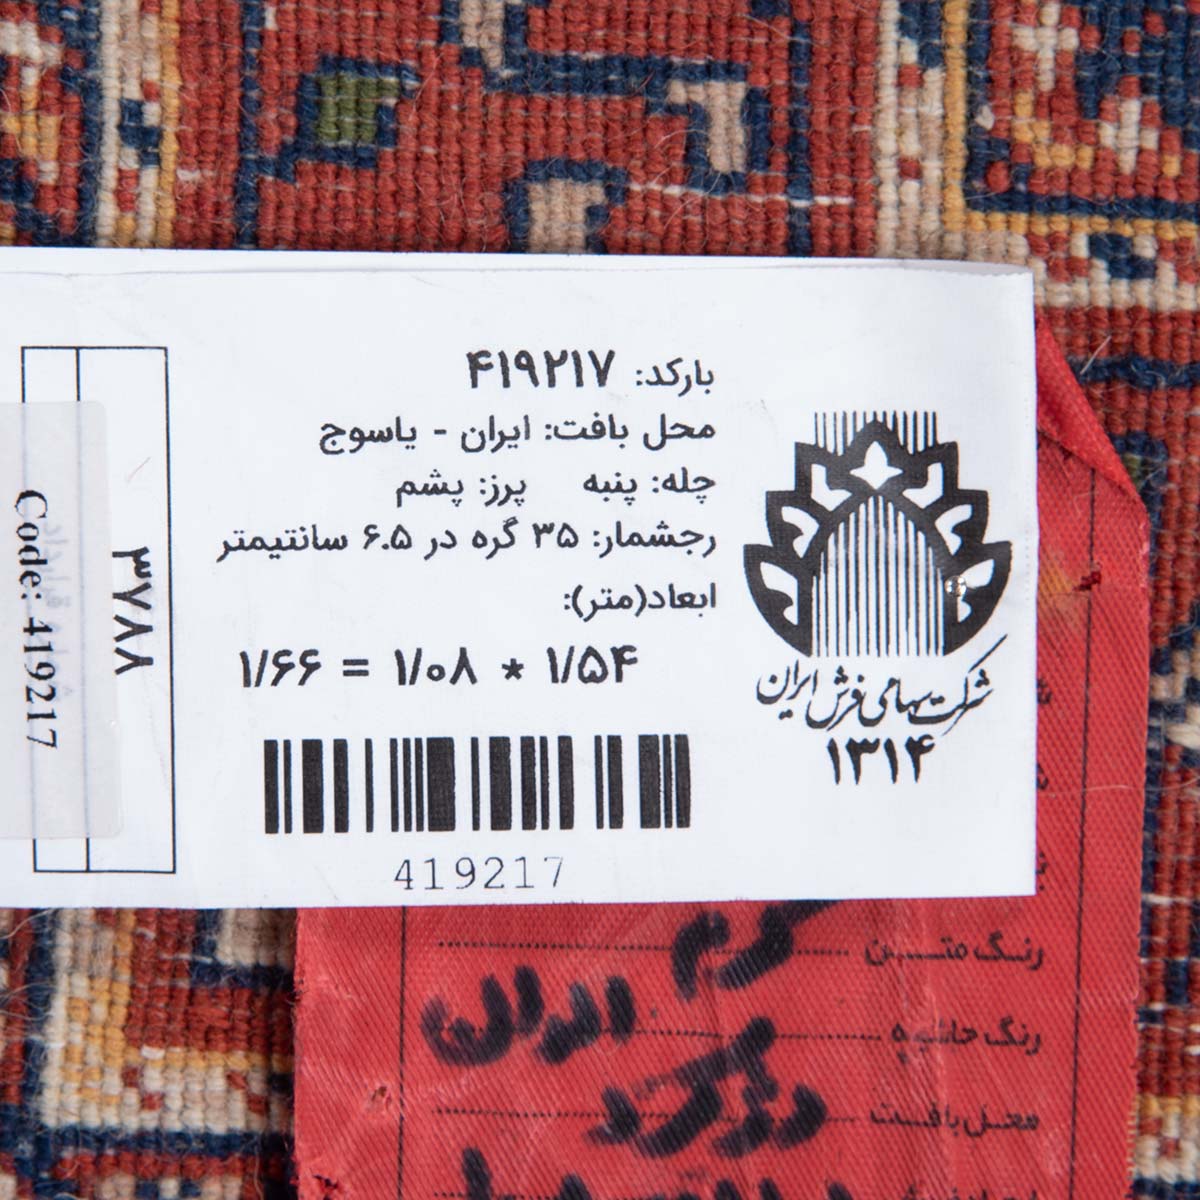 بارکد: ۴۱۹۲۱۷
محل بافت: ایران - یاسوج
چله: پنبه پرز: پشم
رجشمار: ۳۵ گره در ۶.۵ سانتیمتر
ابعاد(متر):
۱/۵۴ * ۱/۰۸ = ۱/۶۶
419217
شرکت سهامی فرش ایران
۱۳۱۴
۳۷۸۸
Code: 419217
رنگ متن کرم
رنگ حاشیه
محل بافت